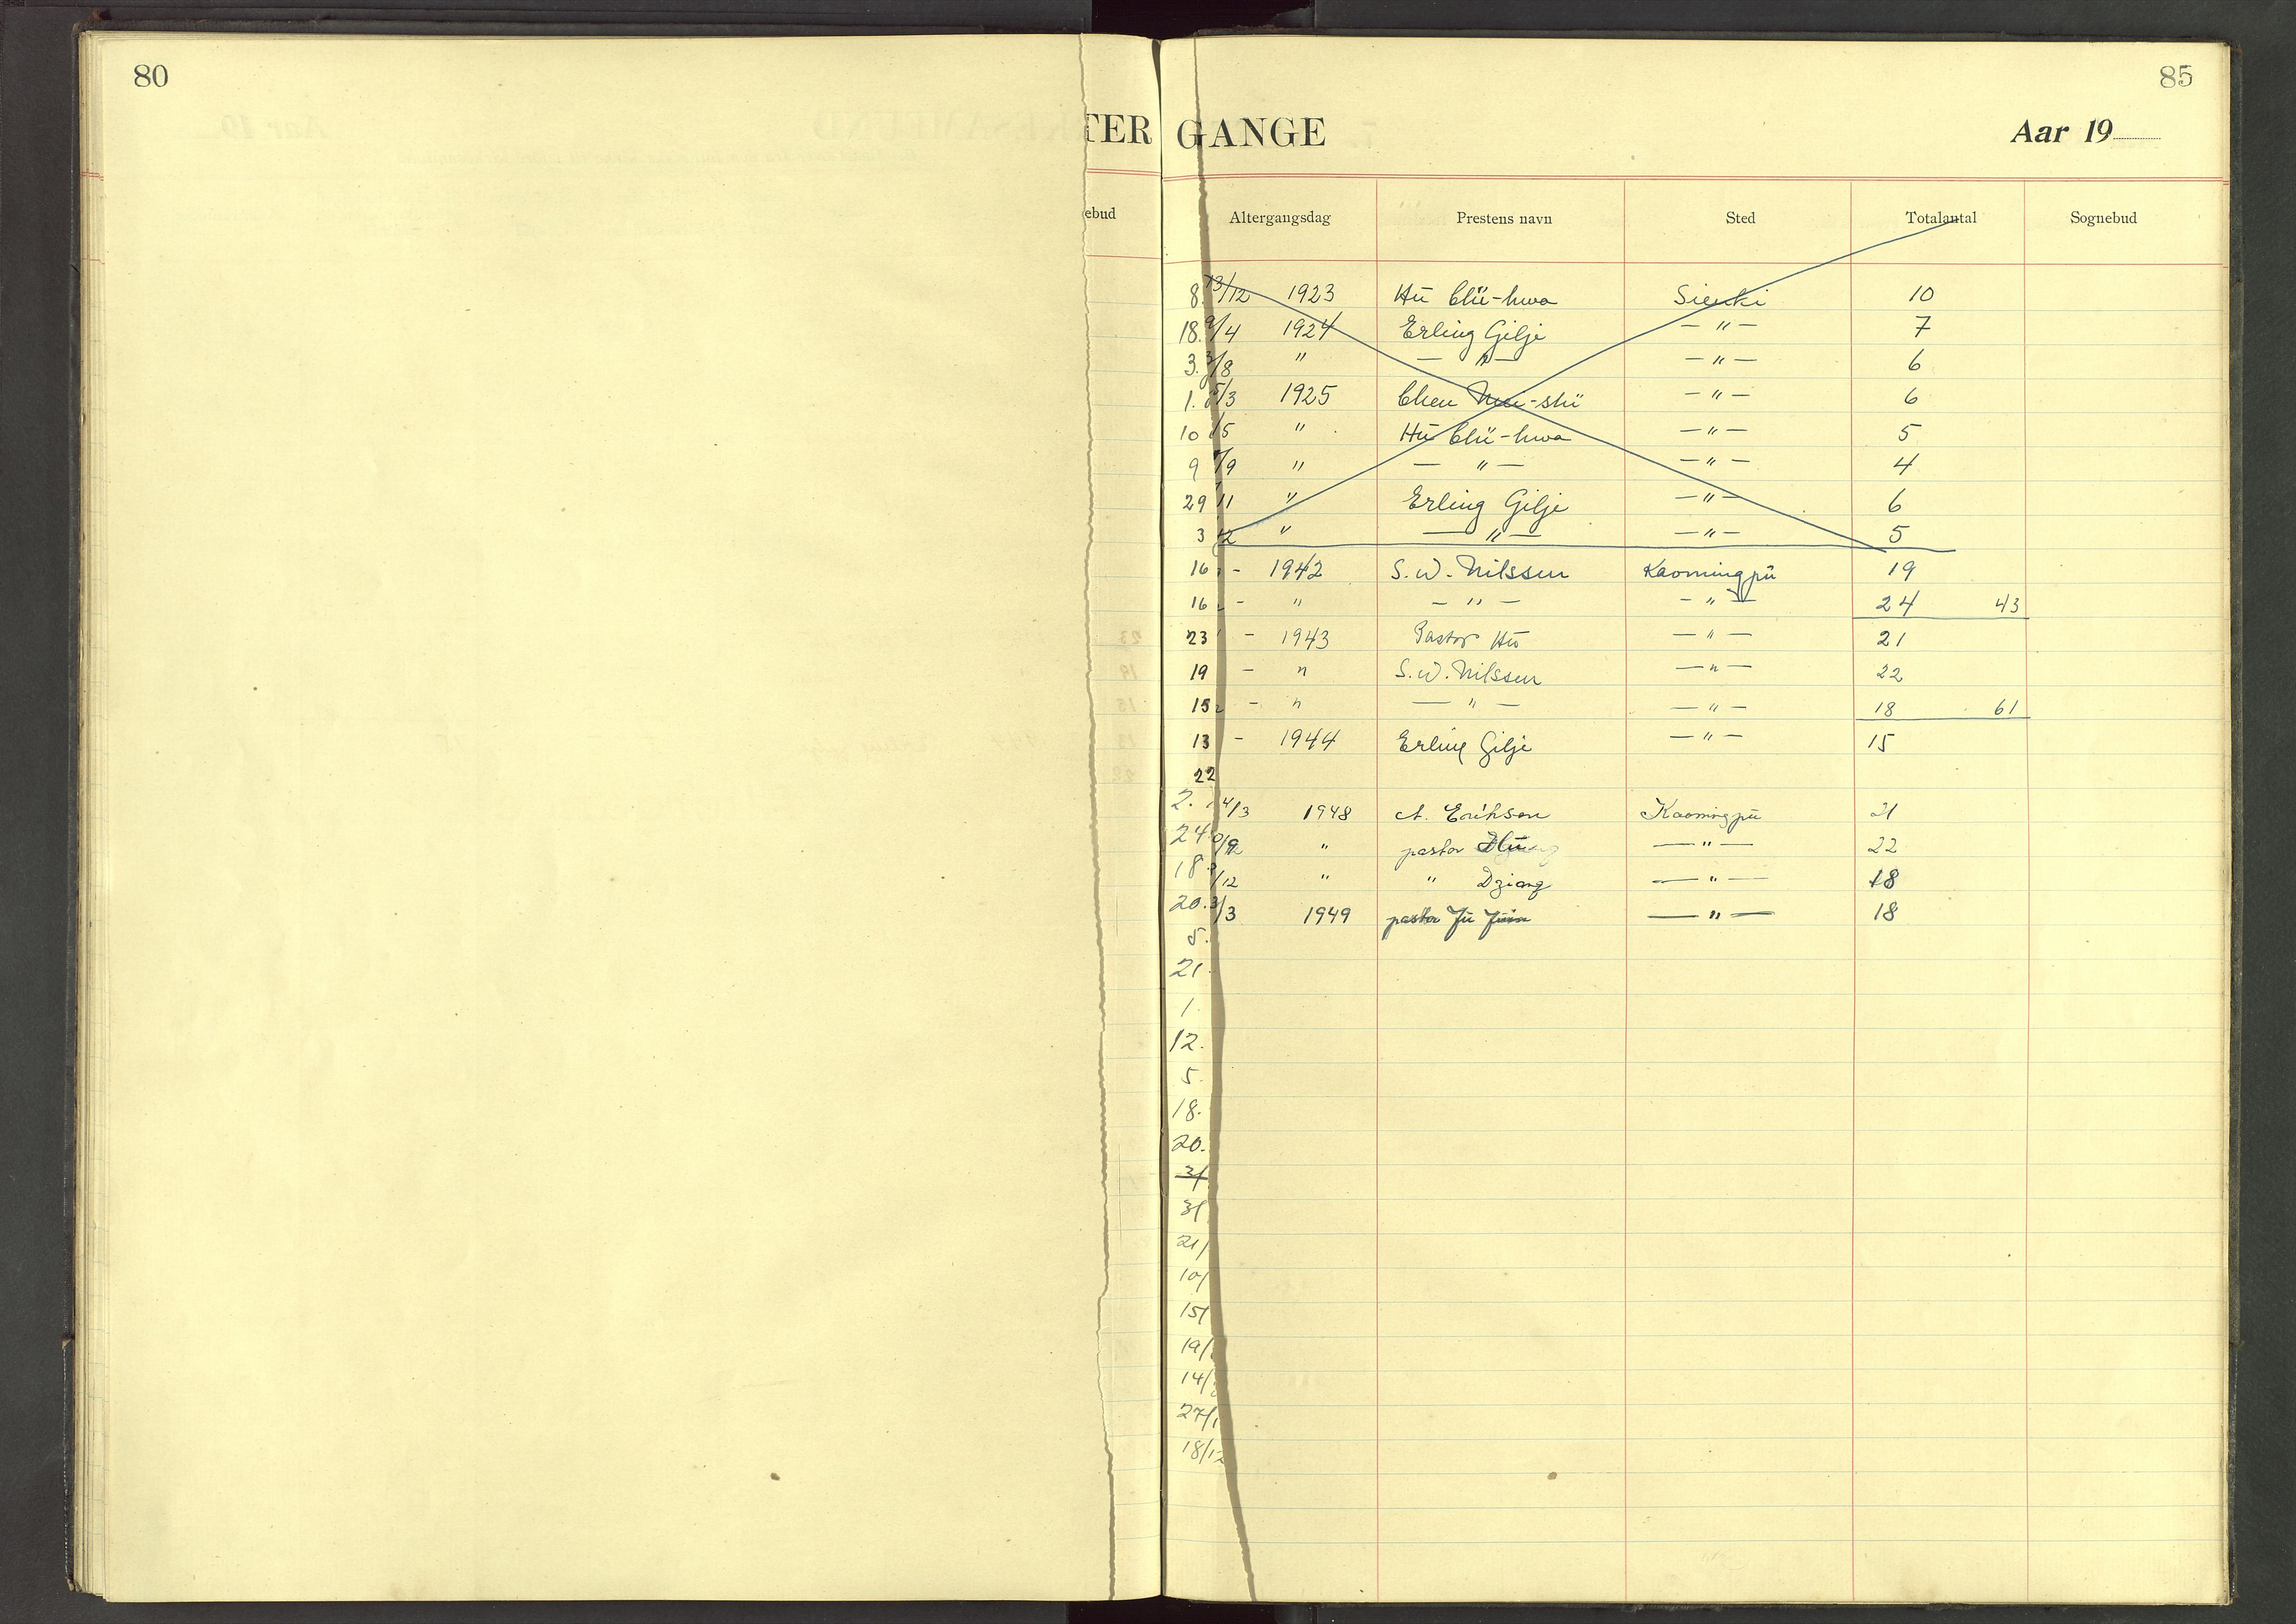 80
85
TER GANGE Aar 19
ebud Altergangsdag Prestens navn Sted Totalantal Sognebud
8. 13/12 1923 Hü Chü-hwa Sienki 10
18. 9/4 1924 Erling Gilje — " — 7
3. 3/8 " — " — — " — 6
1. 5/3 1925 Chen -shï — " — 6
10 /5 " Hü Chü-hwa — " — 5
9 /9 " — " — — " — 4
29 11 " Erling Gilje — " — 6
3 12 " — " — — " — 5
16 - 1942 S. W. Nilssen Kaomingpü 19
16 - " — " — — " — 24 43
23 - 1943 Pastor Hü — " — 21
19 - " S. W. Nilssen — " — 22
15 - " — " — — " — 18 61
13 - 1944 Erling Gilje — " — 15
22
2. 4/3 1948 A. Erikson Kaomingpü 21
24. /9 " pastor Hü — " — 22
18 /12 " " Dziang — " — 18
20. 3/3 1949 pastor Jü — " — 18
5.
21.
1.
12.
5.
18.
20.
31
31
21/
10/
15/
19/
14/
27/1
18/12